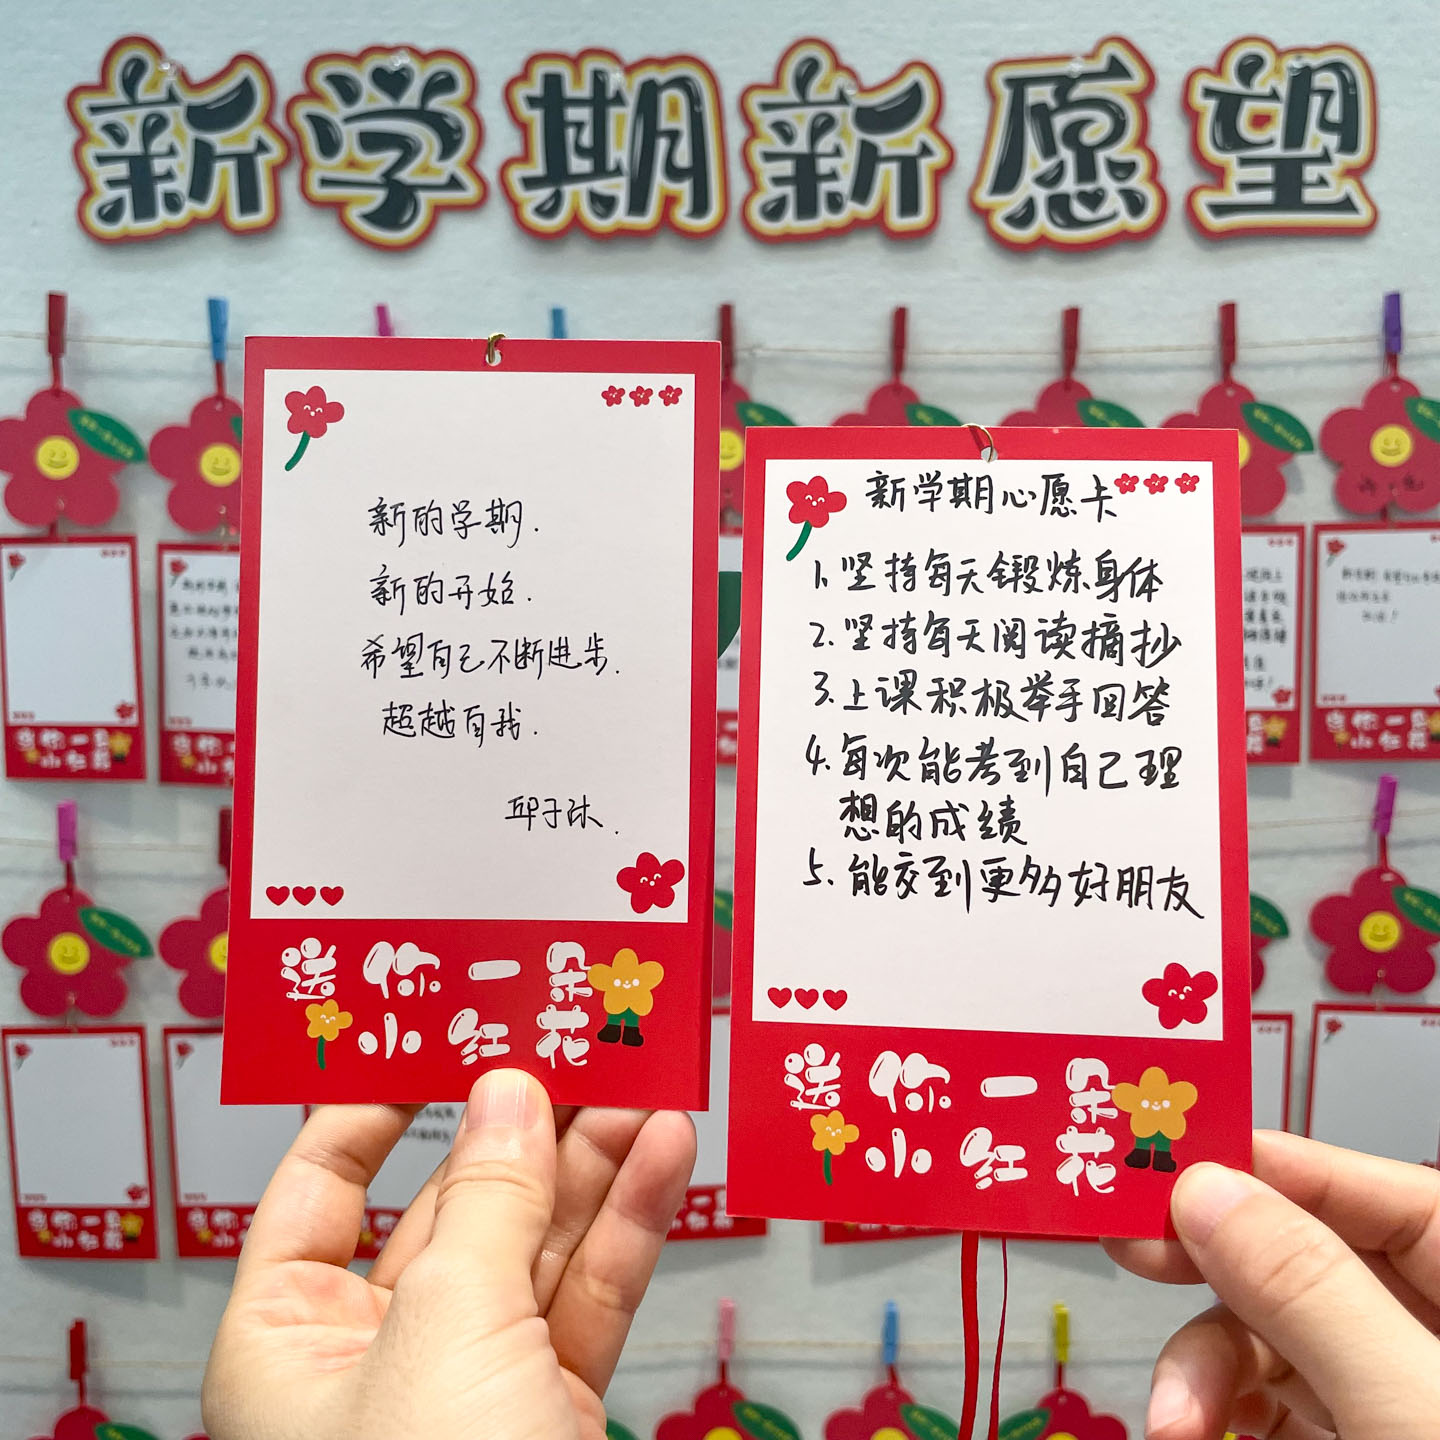 新学期新愿望
新的学期.
新的开始.
希望自己不断进步.
超越自我.
送你一朵
小红花
新学期心愿卡
1.坚持每天锻炼身体
2.坚持每天阅读摘抄
3.上课积极举手回答
4.每次能考到自己理
想的成绩
5.能交到更多好朋友
送你一朵
小红花
送你一朵
小红花